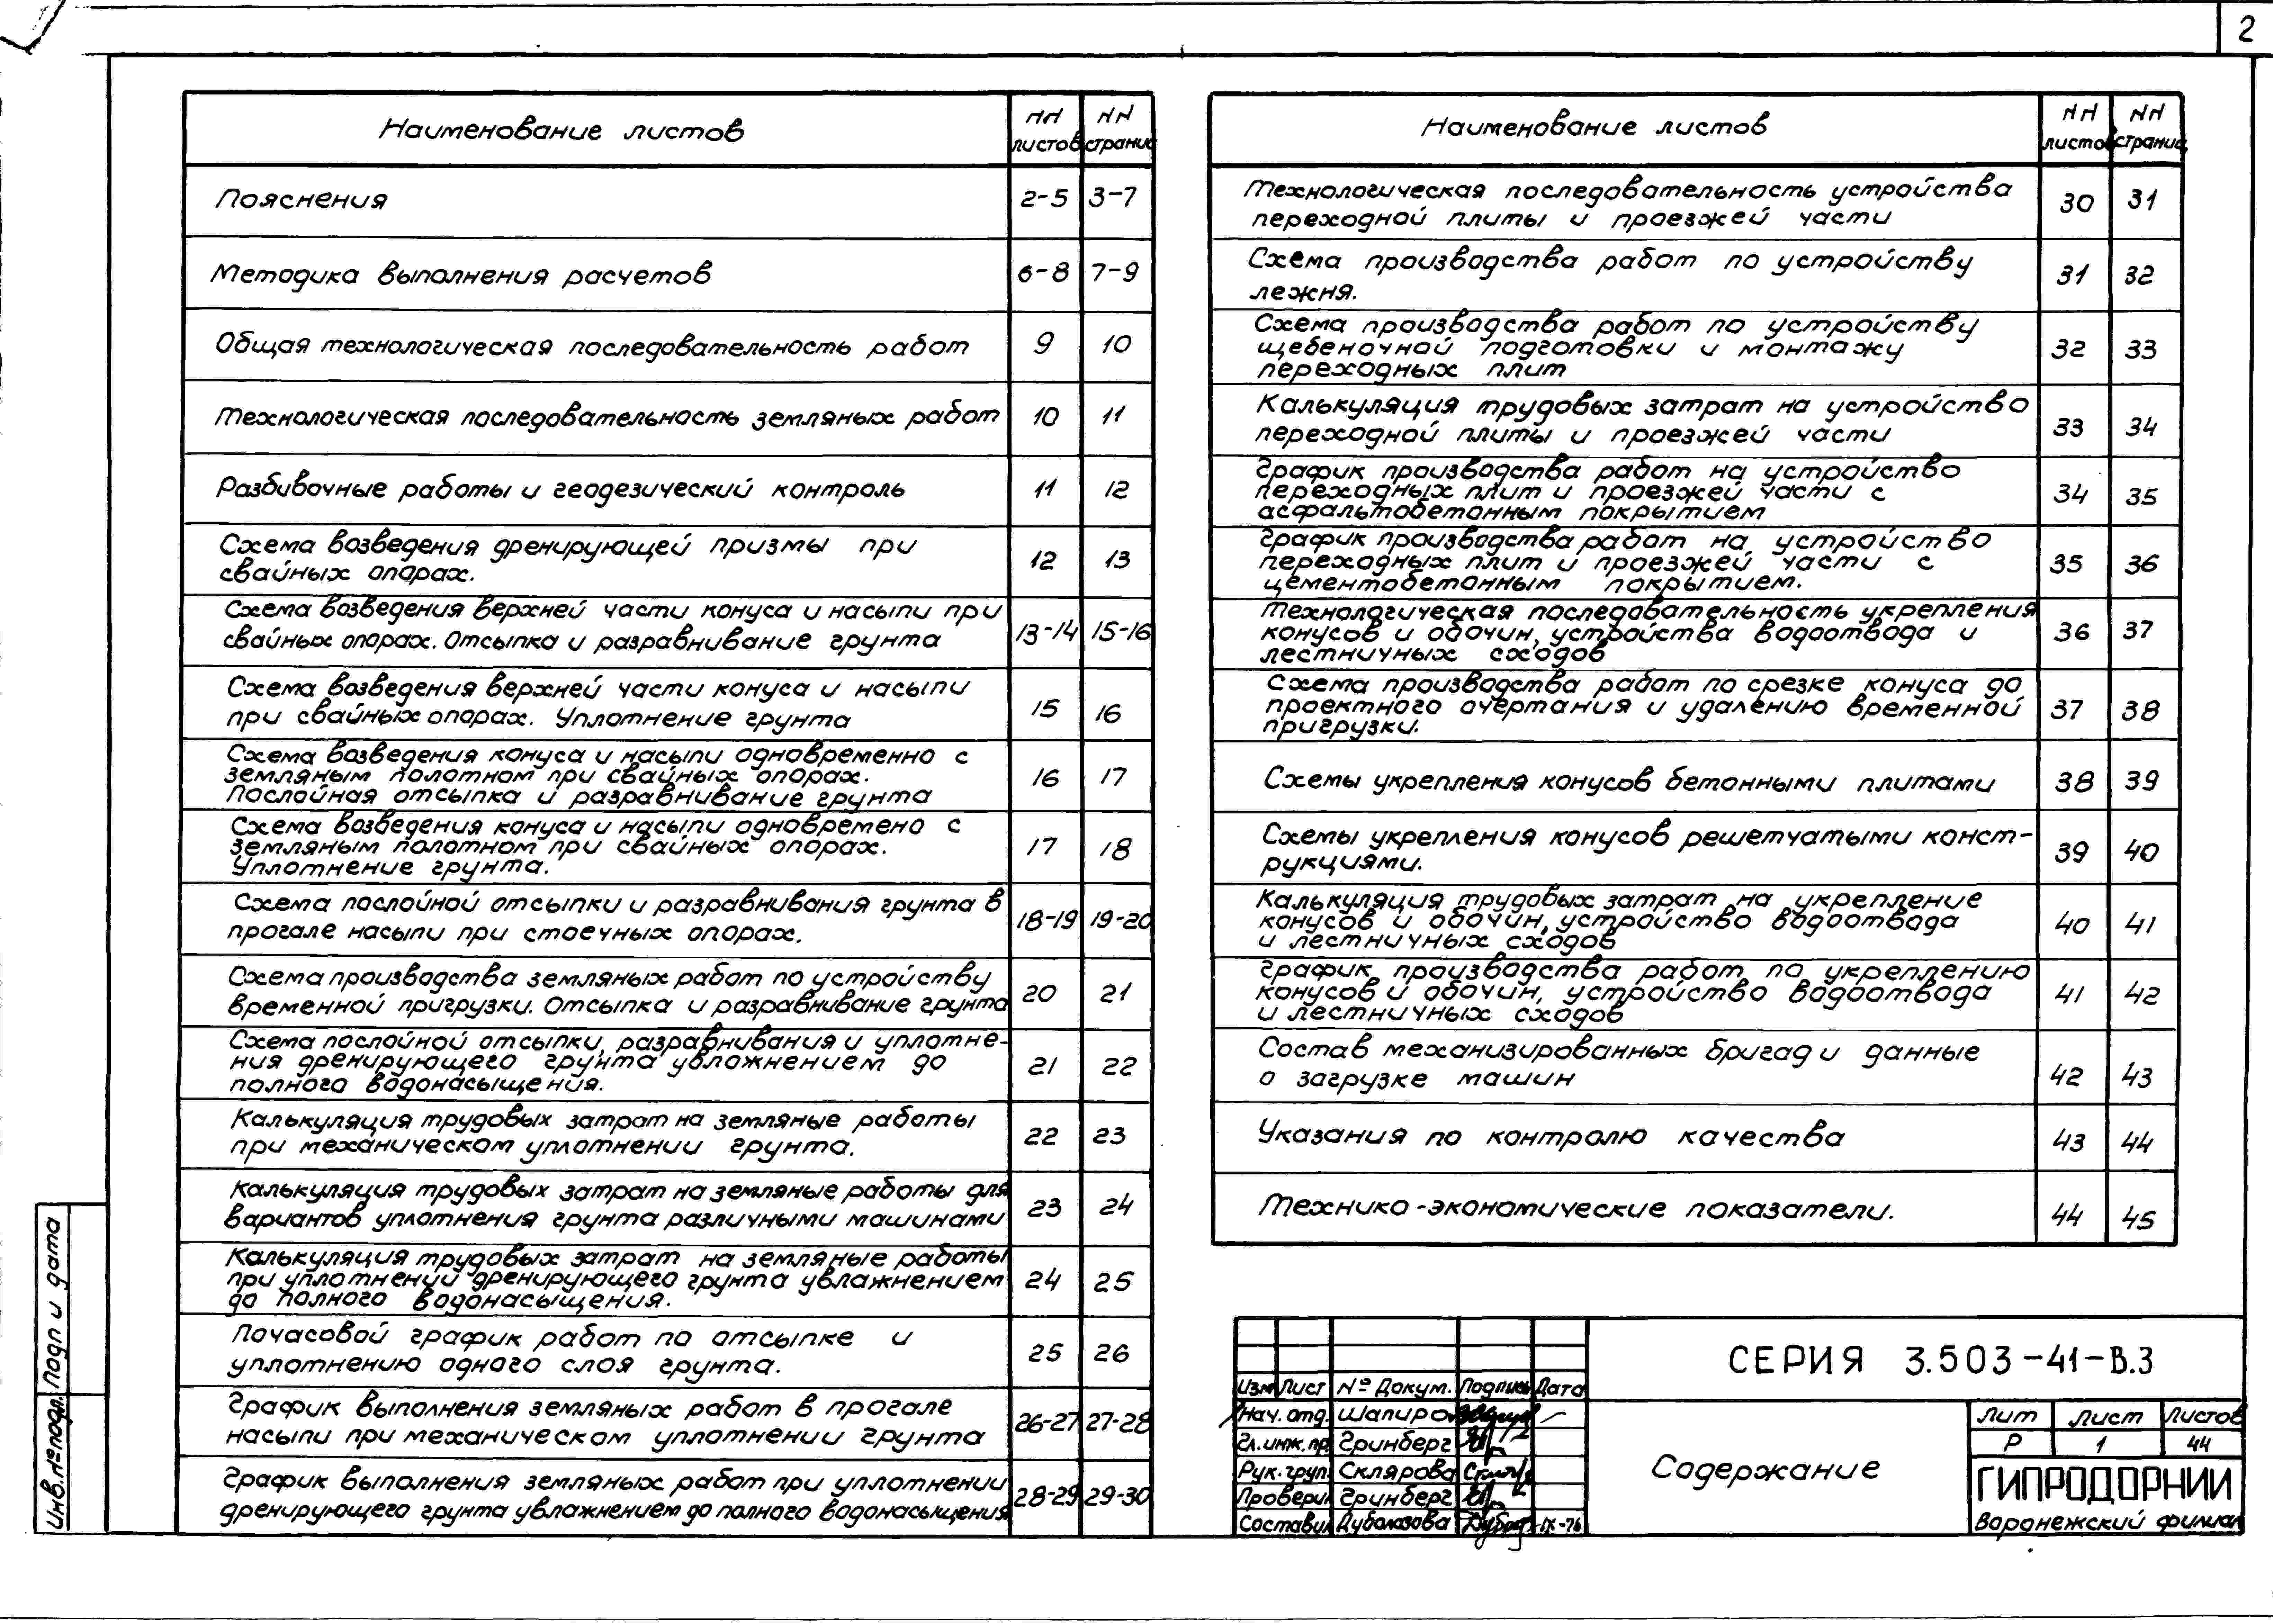 2
Наименование листов
NN листов
NN страниц
Пояснения
2-5
3-7
Методика выполнения расчетов
6-8
7-9
Общая технологическая последовательность работ
9
10
Технологическая последовательность земляных работ
10
11
Разбивочные работы и геодезический контроль
11
12
Схема возведения дренирующей призмы при
свайных опорах.
12
13
Схема возведения верхней части конуса и насыпи при
свайных опорах. Отсыпка и разравнивание грунта
13-14
15-16
Схема возведения верхней части конуса и насыпи
при свайных опорах. Уплотнение грунта
15
16
Схема возведения конуса и насыпи одновременно с
земляным полотном при свайных опорах.
Послойная отсыпка и разравнивание грунта
16
17
Схема возведения конуса и насыпи одновремено с
земляным полотном при свайных опорах.
Уплотнение грунта.
17
18
Схема послойной отсыпки и разравнивания грунта в
прогале насыпи при стоечных опорах.
18-19
19-20
Схема производства земляных работ по устройству
временной пригрузки. Отсыпка и разравнивание грунта
20
21
Схема послойной отсыпки, разравнивания и уплотне-
ния дренирующего грунта увложнением до
полного водонасыщения.
21
22
Калькуляция трудовых затрат на земляные работы
при механическом уплотнении грунта.
22
23
Калькуляция трудовых затрат на земляные работы для
вариантов уплотнения грунта различными машинами
23
24
Калькуляция трудовых затрат на земляные работы
при уплотнении дренирующего грунта увлажнением
до полного водонасыщения.
24
25
Почасовой график работ по отсыпке и
уплотнению одного слоя грунта.
25
26
График выполнения земляных работ в прогале
насыпи при механическом уплотнении грунта
26-27
27-28
График выполнения земляных работ при уплотнении
дренирующего грунта увлажнением до полного водонасыщения
28-29
29-30
Наименование листов
NN листов
NN страниц
Технологическая последовательность устройства
переходной плиты и проезжей части
30
31
Схема производства работ по устройству
лежня.
31
32
Схема производства работ по устройству
щебеночной подготовки и монтажу
переходных плит
32
33
Калькуляция трудовых затрат на устройство
переходной плиты и проезжей части
33
34
График производства работ на устройство
переходных плит и проезжей части с
асфальтобетонным покрытием
34
35
График производства работ на устройство
переходных плит и проезжей части с
цементобетонным покрытием.
35
36
Технологическая последовательность укрепления
конусов и обочин, устройства водоотвода и
лестничных сходов
36
37
Схема производства работ по срезке конуса до
проектного очертания и удалению временной
пригрузки.
37
38
Схемы укрепления конусов бетонными плитами
38
39
Схемы укрепления конусов решетчатыми конст-
рукциями.
39
40
Калькуляция трудовых затрат на укрепление
конусов и обочин, устройство водоотвода
и лестничных сходов
40
41
График производства работ по укреплению
конусов и обочин, устройство водоотвода
и лестничных сходов
41
42
Состав механизированных бригад и данные
о загрузке машин
42
43
Указания по контролю качества
43
44
Технико-экономические показатели.
44
45
Изм Лист № Докум. Подпись Дата
Нач. отд. Шапиро
Гл. инж. пр. Гринберг
Рук. груп. Склярова
Проверил Гринберг
Составил IX-76
СЕРИЯ 3.503-41-В.3
Содержание
Лит Лист Листов
Р 1 44
ГИПРОДОРНИИ
Воронежский филиал
Инв. № подл. Подп и дата